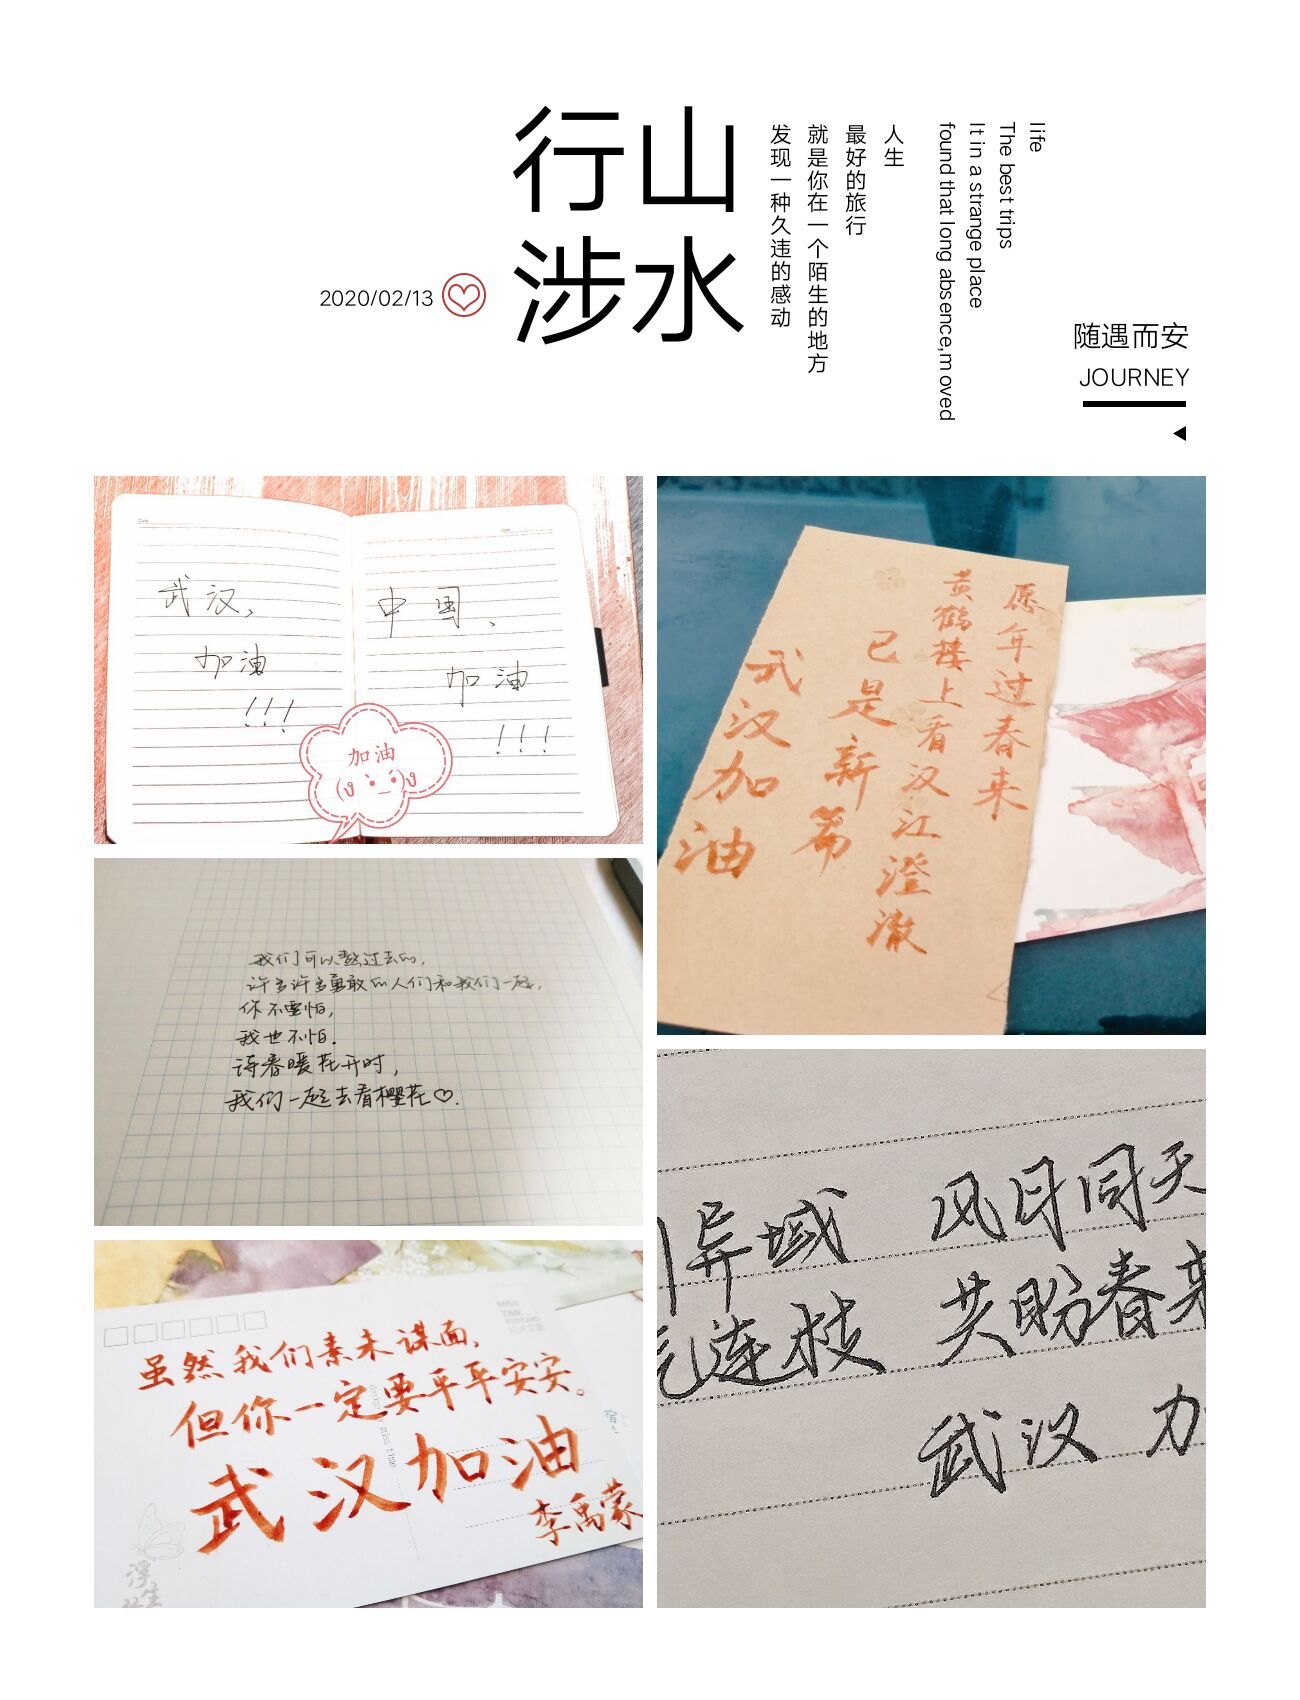 行山
涉水
2020/02/13
人生
最好的旅行
就是你在一个陌生的地方
发现一种久违的感动
life
The best trips
It in a strange place
found that long absence,moved
随遇而安
JOURNEY
武汉,
加油
!!!
中国、
加油
!!!
加油
愿年过春来
黄鹤楼上看汉江澄澈
已是新篇
武汉加油
我们可以熬过去的,
许多许多勇敢的人们和我们一起,
你不要怕,
我也不怕.
待春暖花开时,
我们一起去看樱花♡.
虽然我们素未谋面,
但你一定要平平安安。
武汉加油
李禹蒙
浮生
MISS
TIME
POSTCARD
川异域 风月同天
气连枝 共盼春来
武汉 加